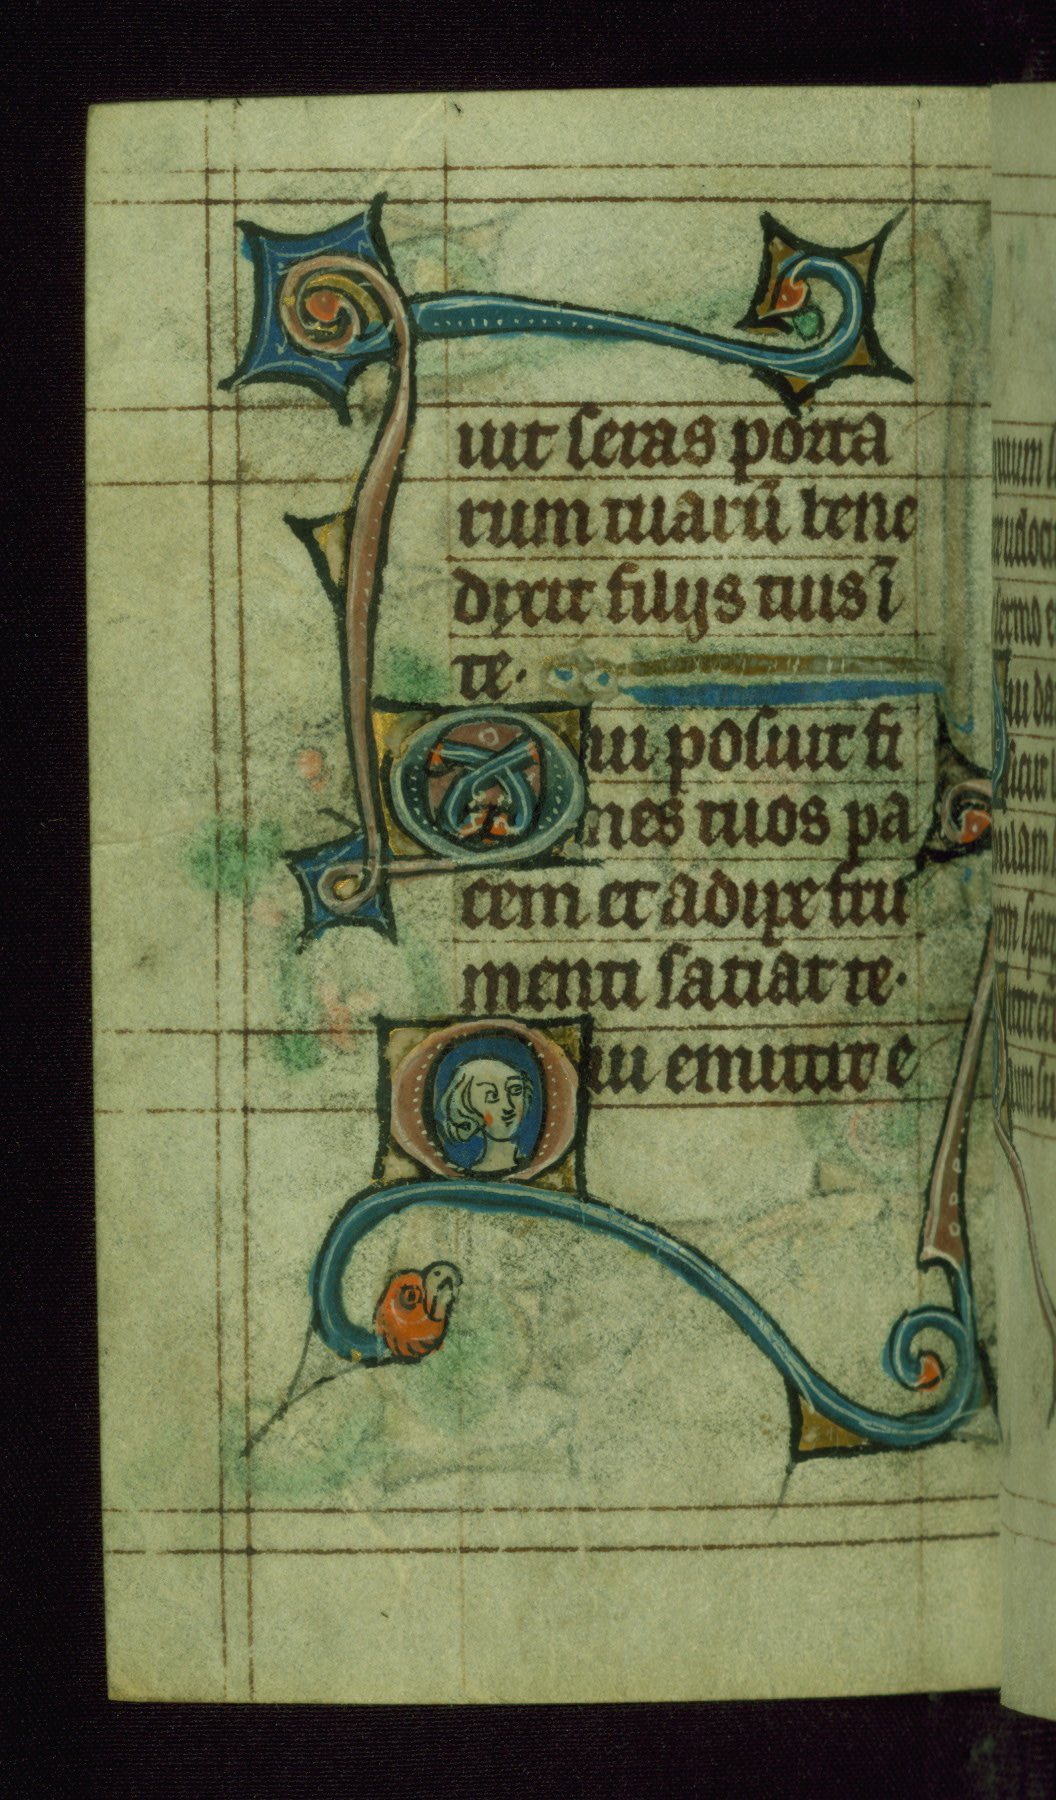 uit seras porta
rum tuarū bene
dyxit filijs tuis ī
te.
Qui posuit fi
nes tuos pa
cem et adipe fru
menti satiat te.
Qui emittit e